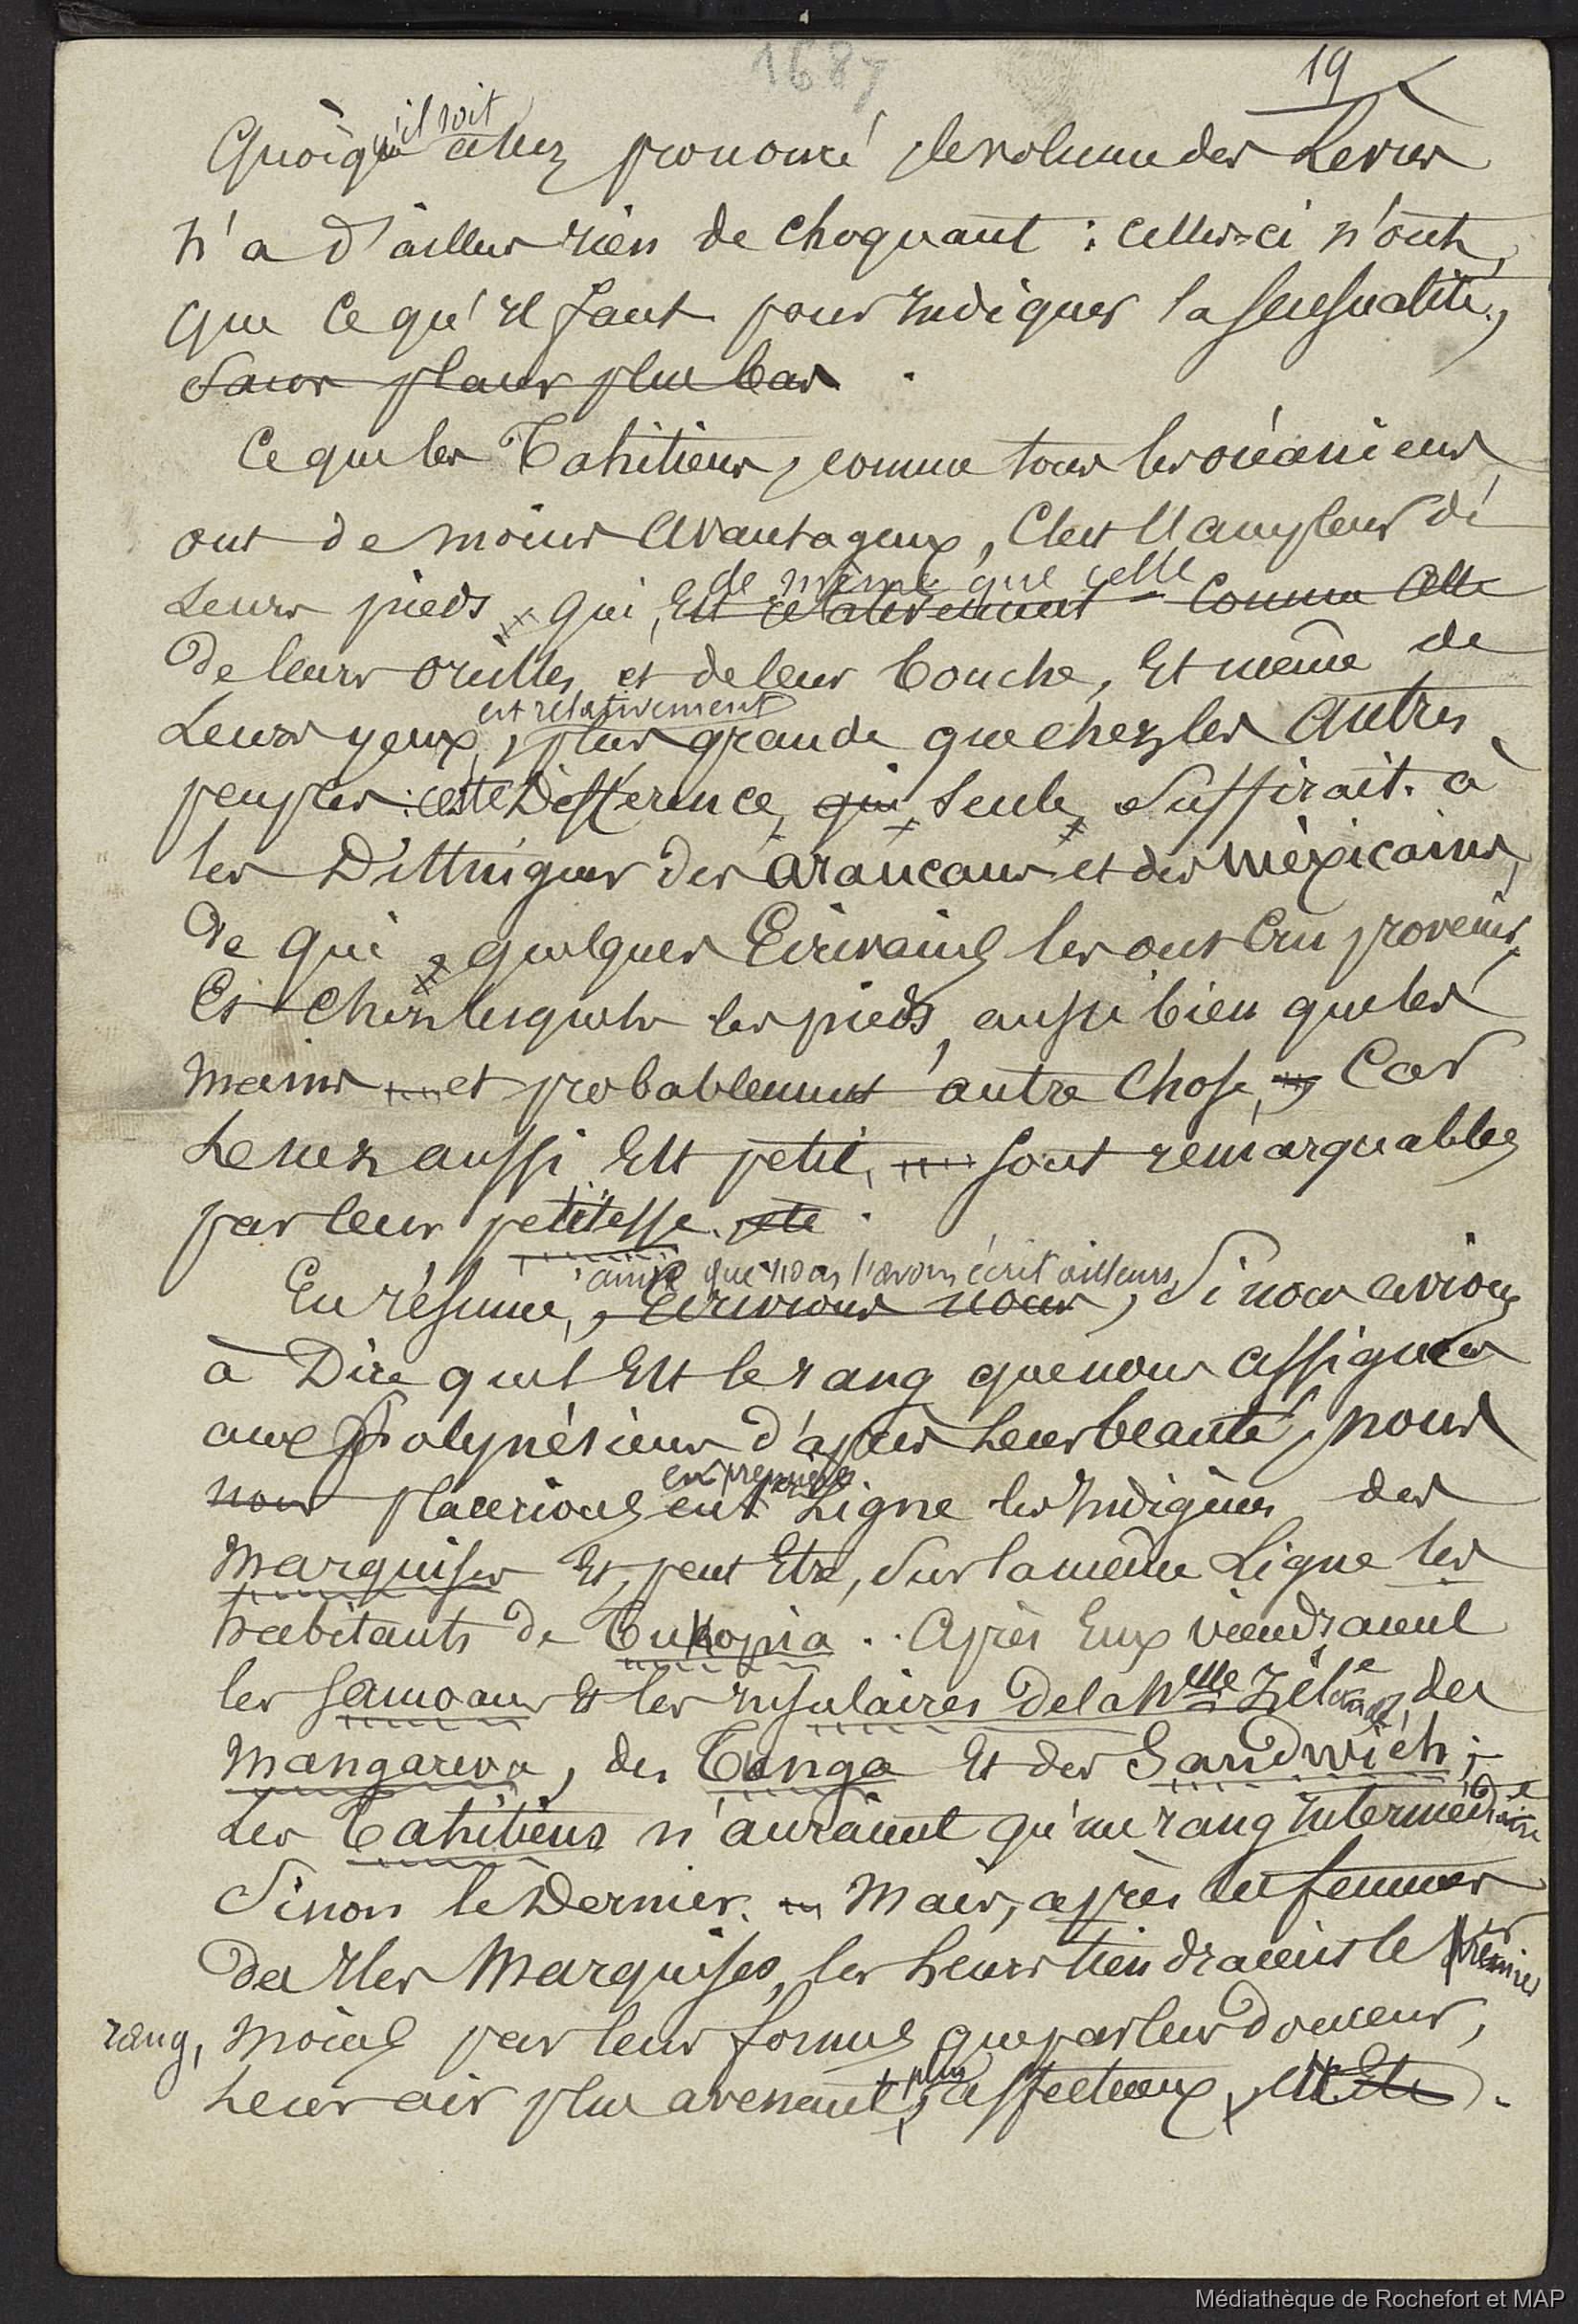 1687
19
Quoiqu'il soit assez prononcé le volume des Lèvres
n'a d'ailleurs rien de choquant : celles-ci n'ont,
que ce qu'il faut pour indiquer la sensualité,
sans placer plus bas.
Ce que les Tahitiens, comme tous les océaniens
ont de moins avantageux, C'est l'ampleur de
de même que celle
Leurs pieds qui, Est relativement comme celle
de leurs oreilles et de leur bouche, Et même de
est relativement
Leurs yeux, plus grande que chez les autres
peuples : cette Différence, qui seule, suffirait à
les Distinguer des araucans et des mexicains,
de qui quelques Ecrivains les ont Cru provenir,
Et chez lesquels les pieds, aussi bien que les
mains et probablement autre chose, Car
Le nez aussi Est petit, sont remarquables
par leur petitesse. etc.
ainsi que nous l'avons écrit ailleurs,
En résumé, Ecrivions nous, Si nous avions
à Dire quel Est le rang que nous assignons
aux Polynésiens d'après Leur beauté, nous
en première
nous placerions en 1ère Ligne les Indigènes des
Marquises Et, peut Etre, sur la même Ligne les
habitants de Tukopia. Après Eux viendraient
les Samoans & les Insulaires de la Nlle Zélande, des
Mangareva, des Tonga Et des Sandwich ;
Les Tahitiens n'auraient qu'un rang Intermédiaire
Sinon le Dernier. Mais, après les femmes
des Iles Marquises, les Leurs tiendraient le premier
rang, moins par leur formes que par leur Douceur,
Leur air plus avenant, plus affectueux, etc Etc.
Médiathèque de Rochefort et MAP